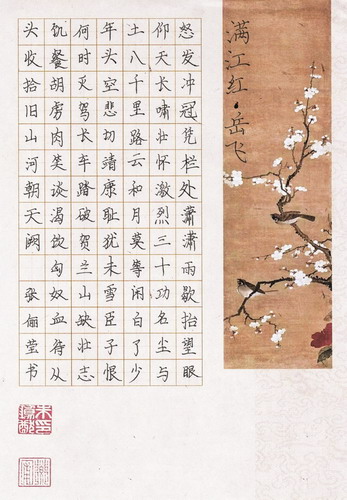 满江红·岳飞
怒发冲冠凭栏处潇潇雨歇抬望眼
仰天长啸壮怀激烈三十功名尘与
土八千里路云和月莫等闲白了少
年头空悲切靖康耻犹未雪臣子恨
何时灭驾长车踏破贺兰山缺壮志
饥餐胡虏肉笑谈渴饮匈奴血待从
头收拾旧山河朝天阙
张俪莹书